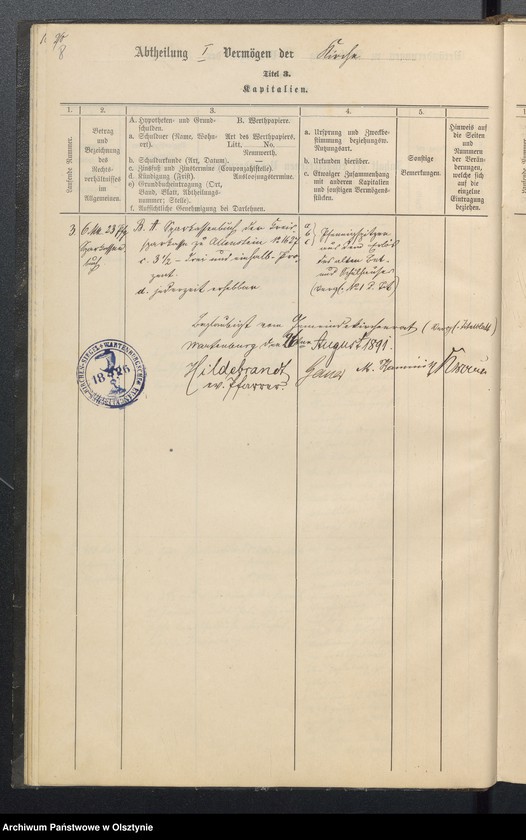 8
Abtheilung I Vermögen der Kirche
Titel 3.
Kapitalien.
1.
2.
3.
4.
5.
Laufende Nummer.
Betrag
und
Bezeichnung
des
Rechts-
verhältnisses
im
Allgemeinen.
A. Hypotheken- und Grund-
schulden.
a. Schuldner (Name, Wohn-
ort).
b. Schuldurkunde (Art, Datum).
c. Zinsfuß und Zinstermine (Couponzahlstelle).
d. Kündigung (Frist).
e. Grundbucheintragung (Ort,
Band, Blatt, Abtheilungs-
nummer; Stelle).
f. Aufsichtliche Genehmigung bei Darlehnen.
B. Werthpapiere.
Art des Werthpapiers.
Litt. No.
Nennwerth.
—
Auslosungstermine.
a. Ursprung und Zweckbe-
stimmung beziehungsw.
Nutzungsart.
b. Urkunden hierüber.
c. Etwaiger Zusammenhang
mit anderen Kapitalien
und sonstigen Vermögens-
stücken.
Sonstige
Bemerkungen.
Hinweis auf
die Seiten
und
Nummern
der Verän-
derungen,
welche sich
auf die
einzelne
Eintragung
beziehen.
3
Sparkassen
buch
Sparkassenbuch der Kreis
sparkasse zu Allenstein
c. 3½ – drei und einhalb Pro
zent
d. jederzeit erhebbar
a
b
c
aus dem Erlös
des alten Bet-
und Schulhauses
Beglaubigt vom Gemeindekirchenrat
Wartenburg den August 1891.
Hildebrandt
Pfarrer